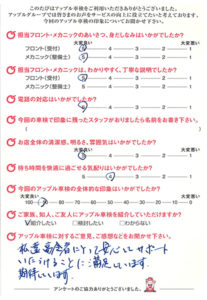 このたびはアップル車検をご利用いただきありがとうございました。
アップルグループでは皆さまの声をサービスの向上に役立てたいと考えております。
今回のアップル車検の印象についてお聞かせ下さい。
担当フロント・メカニックのあいさつ、身だしなみはいかがでしたか?
大変良い 大変悪い
フロント(受付) 5 4 3 2 1
メカニック(整備士) 5 4 3 2 1
担当フロント・メカニックは、わかりやすく、丁寧な説明でしたか?
大変良い 大変悪い
フロント(受付) 5 4 3 2 1
メカニック(整備士) 5 4 3 2 1
電話の対応はいかがでしたか?
大変良い 大変悪い
5 4 3 2 1
今回の車検で印象に残ったスタッフがおりましたら名前をお書き下さい。
お店全体の清潔感、明るさ、雰囲気はいかがでしたか?
大変良い 大変悪い
5 4 3 2 1
待ち時間を快適に過ごせる気配りはいかがでしたか?
大変良い 大変悪い
5 4 3 2 1
今回のアップル車検の全体的な印象はいかがでしたか?
大変良い 大変悪い
100 90 80 70 60 50 40 30 20 10 0
ご家族、知人、ご友人にアップル車検を紹介していただけますか?
紹介したい 検討したい わからない
アップル車検に対するご意見、ご感想などをお聞かせ下さい。
にとって安心して サポート
いただけることに満足しています。
期待しています。
アンケートのご協力ありがとうございました。